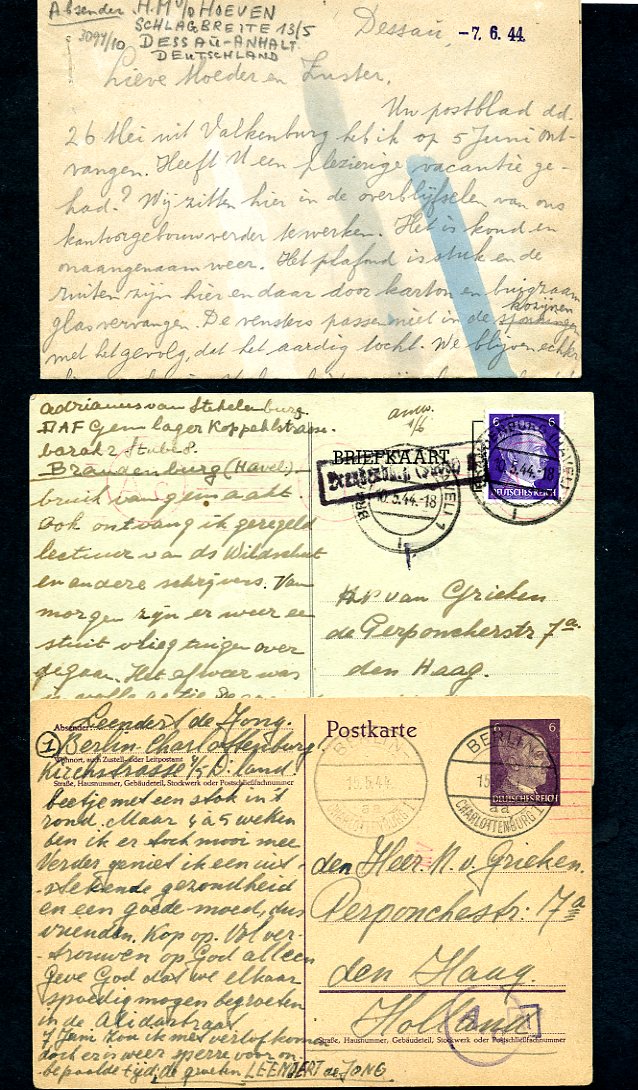 Absender H.M. v/d HOEVEN
SCHLAGBREITE 13/5
3094/10 DESSAU-ANHALT
DEUTSCHLAND
Dessau, -7. 6. 44
Lieve Moeder en Zuster,
Uw postblad dd.
26 Mei uit Valkenburg heb ik op 5 Juni ont-
vangen. Heeft U een plezierige vacantie ge-
had? Wij zitten hier in de overblijfselen van ons
kantoorgebouw verder te werken. Het is koud en
onaangenaam weer. Het plafond is stuk en de
ruiten zijn hier en daar door karton en buigzaam
glas vervangen. De vensters passen niet in de sponningen
kozijnen
met het gevolg, dat het aardig tocht. We blijven echter
adrianus van Stekelenburg
DAF Gem lager Koppehlstrasse
barak 2 Stube 8.
Brandenburg (Havel)
bruik van gemaakt
ook ontvang ik geregeld
lectuur van ds Wildschut
en andere schrijvers. Van
morgen zijn er weer een
stuit vliegtuigen over
gegaan. Het afweer was
antw.
1/6
BRIEFKAART
10.5.44.-18
10.5.44.-18
6 6
DEUTSCHES REICH
H.P van Grieken
de Perponcherstr 7a.
den Haag.
Absender: Leendert de Jong.
1 Berlin Charlottenburg
Wohnort, auch Zustell- oder Leitpostamt
Kirchstrasse 4/5 D.land.
Straße, Hausnummer, Gebäudeteil, Stockwerk oder Postschließfachnummer
beetje met een stok in't
rond. Maar 4 à 5 weken
ben ik er toch mooi mee
Verder geniet ik een uit-
stekende gezondheid
en een goede moed, dus
vrienden. Kop op. Vol ver-
trouwen op God alleen
Geve God dat we elkaar
spoedig mogen begroeten
in de Alidastraat
7 Juni zou ik met verlof komen
doch er is weer sperre voor on
bepaalde tijd, de groeten LEENDERT de JONG
Postkarte
BERLIN
15.5.44
aa
CHARLOTTENBURG 1
BERLIN
15
aa
CHARLOTTENBURG 1
6
DEUTSCHES REICH
den Heer N. v. Grieken.
Perponchestr. 7a
den Haag.
Holland
A
Straße, Hausnummer, Gebäudeteil, Stockwerk oder Postschließfachnummer